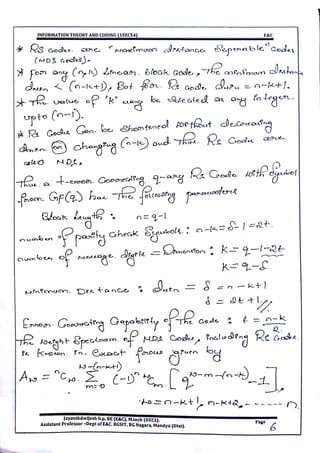 INFORMATION THEORY AND CODING (15EC54) E&C
* RS Codes are "Maximum distance Separable" Codes
(MDS Codes).
* for any (n, k) Linear block Code, The minimum distance
dmin ≤ (n-k+1), But for RS Code dmin = n-k+1.
* The value of "K" may be selected as any integer
upto (n-1).
* RS Codes Can be shortened without decreasing
dmin (or) changing (n-k) and Thus RS Codes are
also MDS.
Thus a t-error Correcting q-ary RS Code with symbol
from GF(q) has The following parameters
Block length : n = q-1
number of parity check symbols : n-k = δ-1 = 2t
number of message digits = Dimension : k = q-1-2t
k = q-δ
Minimum Distance : dmin = δ = n-k+1
δ = 2t+1
Error Correcting Capability of The Code : t = n-k / 2
The weight Spectrum of MDS Codes, including RS Codes
is known in exact form given by
w-(n-k+1)
Aw = nCw Σ (-1)m wCm [q w-m-(n-k) -1]
m=0
w = n-k+1, n-k+2, ------ n.
Jayanthdwijesh h.p. BE (E&C), M.tech (DECS).
Assistant Professor -Dept of E&C. BGSIT, BG Nagara, Mandya (Dist). Page 6